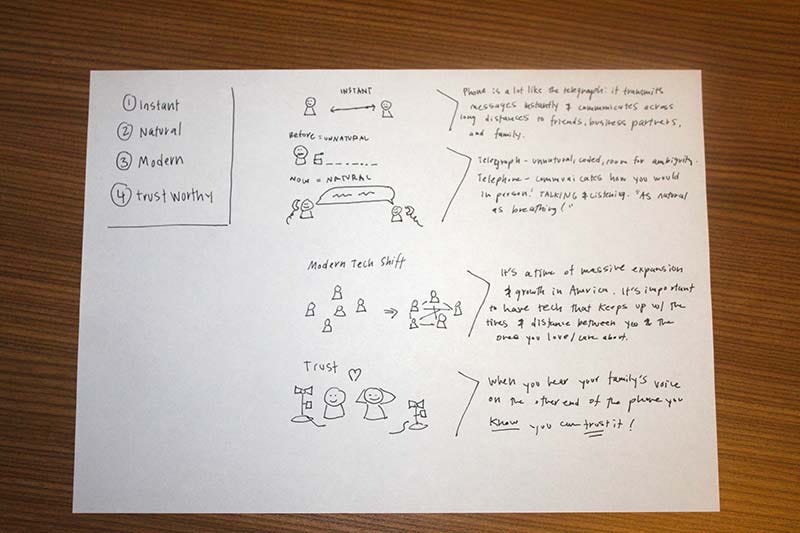 ① Instant
② Natural
③ Modern
④ Trustworthy
INSTANT
Phone is a lot like the telegraph: it transmits
messages instantly & communicates across
long distances to friends, business partners,
and family.
Before = UNNATURAL
NOW = NATURAL
Telegraph - unnatural, coded, room for ambiguity.
Telephone - communicates how you would
in person! TALKING & Listening. "As natural
as breathing!"
Modern Tech Shift
It's a time of massive expansion
& growth in America. It's important
to have tech that keeps up w/ the
& distance between you & the
ones you love/care about.
Trust
When you hear your family's voice
on the other end of the phone you
know you can trust it!